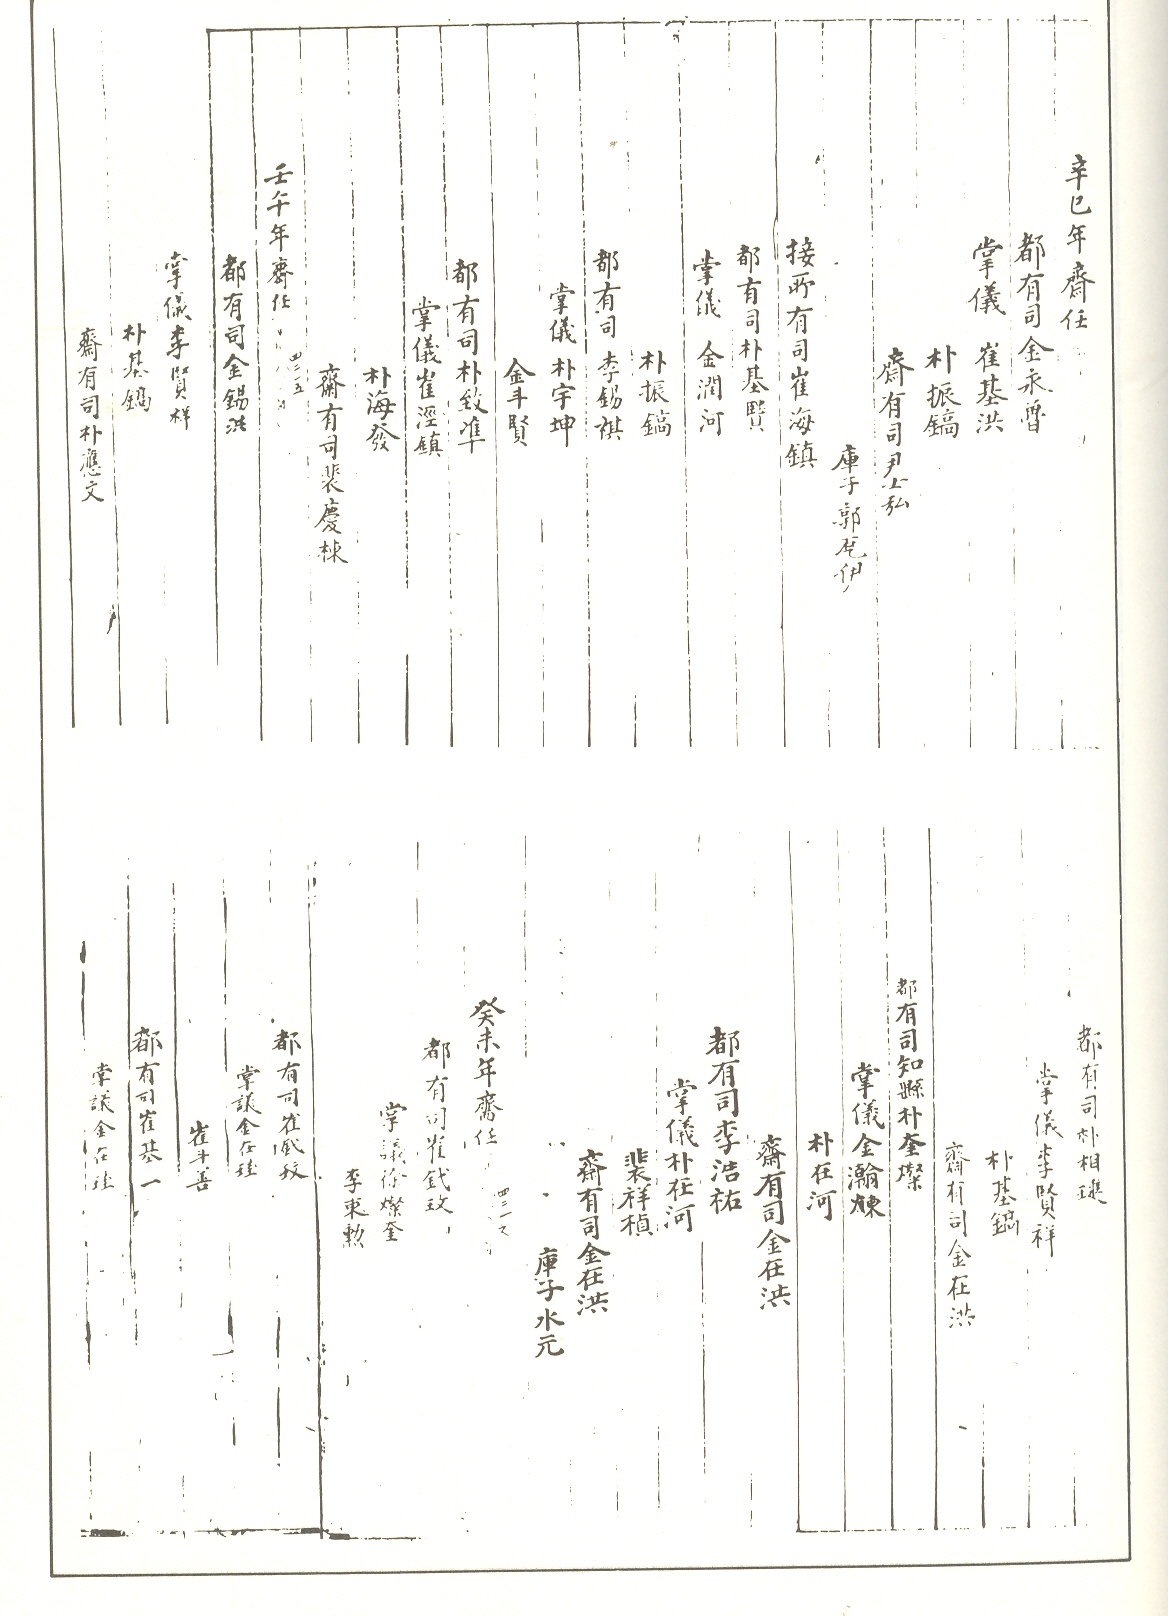 辛巳年齋任
都有司金永
掌儀 崔基洪
朴振鎬
齋有司尹士弘
庫子郭 伊
接所有司崔海鎮
都有司朴基賢
掌儀 金潤河
朴振鎬
都有司 李錫祺
掌儀 朴宇坤
金斗賢
都有司朴致準
掌儀崔瀅鎮
朴海發
齋有司裴慶棟
壬午年齋任
四二一五
都有司金錫洪
掌儀李賢祥
朴基鎬
齋有司朴應文
都有司朴相璡
掌儀李賢祥
朴基鎬
齋有司金在洪
都有司知縣朴奎燦
掌儀金瀚煉
朴在河
齋有司金在洪
都有司李浩祐
掌儀朴在河
裴祥楨
齋有司金在洪
庫子水元
癸未年齋任
都有司崔 玟
掌議徐燦奎
李東勲
都有司崔 玟
掌議金在
崔斗善
都有司崔基一
掌議金在